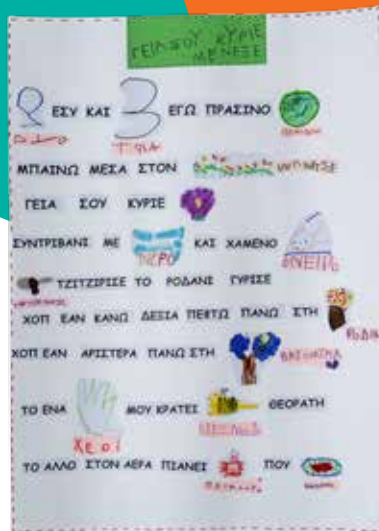 ΓΕΙΑ ΣΟΥ ΚΥΡΙΕ
ΜΕΝΕΞΕ
2 ΕΣΥ ΚΑΙ 3 ΕΓΩ ΠΡΑΣΙΝΟ
ΔΥΟ ΤΡΙΑ
ΜΠΑΙΝΩ ΜΕΣΑ ΣΤΟΝ
ΓΕΙΑ ΣΟΥ ΚΥΡΙΕ
ΣΥΝΤΡΙΒΑΝΙ ΜΕ ΚΑΙ ΧΑΜΕΝΟ
ΝΕΡΟ ΟΝΕΙΡΟ
ΤΖΙΤΖΙΡΙΣΕ ΤΟ ΡΟΔΑΝΙ ΓΥΡΙΣΕ
ΧΟΠ ΕΑΝ ΚΑΝΩ ΔΕΞΙΑ ΠΕΦΤΩ ΠΑΝΩ ΣΤΗ
ΡΟΔΙΑ
ΧΟΠ ΕΑΝ ΑΡΙΣΤΕΡΑ ΠΑΝΩ ΣΤΗ
ΤΟ ΕΝΑ ΜΟΥ ΚΡΑΤΕΙ ΘΕΟΡΑΤΗ
ΧΕΡΙ
ΤΟ ΑΛΛΟ ΣΤΟΝ ΑΕΡΑ ΠΙΑΝΕΙ ΠΟΥ